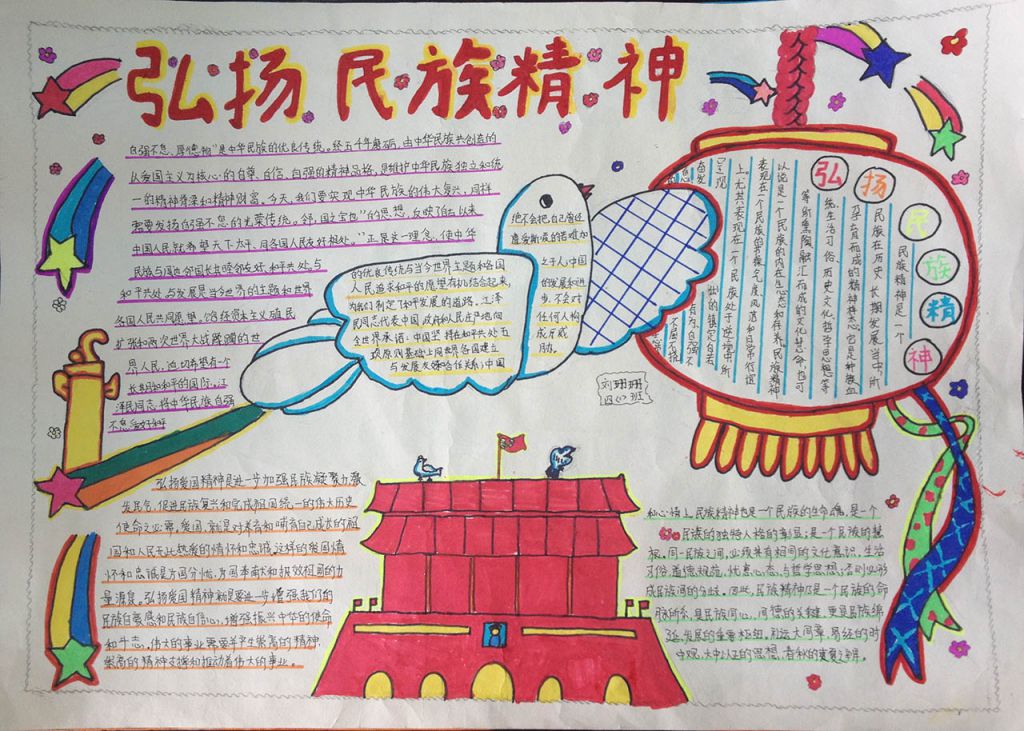 弘扬民族精神
自强不息、厚德载物"是中华民族的优良传统。经五千年磨砺，由中华民族共创造的
从爱国主义为核心的自尊、自信、自强的精神品格，是维护中华民族独立和统
一的精神资深和精神财富。今天，我们要实现中华民族的伟大复兴，同样
需要发扬自强不息的光荣传统。
的思想，反映了自古以来
中国人民就希望天下太平、同各国人民友好相处。"正是这一理念，使中华
民族与周边邻国长期睦邻友好，和平共处与
和平共处与发展是当今世界的主题和世界
各国人民共同愿望。
扩张和两次世界大战
界人民，迫切希望有个
长期的和平的国际。江
泽民同志，将中华民族自强
不息
的优良传统与当今世界主题和各国
人民追求和平的愿望有机结合起来，
为我们制定了和平发展的道路。江泽
民同志代表中国政府和人民庄严地向
全世界承诺：中国坚持在和平共处五
项原则基础上同世界各国建立
与发展友好合作关系；中国
绝不会把自己曾经
遭受斯凌的苦难加
之于人；中国
的发展和进
步，不会对
任何人构
成牙威
胁。
弘扬民族精神
民族精神是一个
民族在历史长期发展当中所
孕育而成的精神样态。它是种族血
统、生活习俗、历史文化、哲学思想等
等所熏陶、融汇而成的文化慧命，也可
以说是一个民族的内在心态和存养。民族精神
表现在一个民族的节操、气度、风范和日常行谊
上。尤其表现在一个民族处于逆境中所
刘珊珊
四(2)班
弘扬爱国精神是进一步加强民族凝聚力、激
发民气，促进民族复兴和完成祖国统一的伟大历史
使命之必需。爱国，就是对养育和哺育自己成长的祖
国和人民无比热爱的情怀和忠诚。这样的爱国情
怀和忠诚是万国分怡，万国奉献和报效祖国的力
量源泉。弘扬爱国精神就是要进一步增强我们的
民族自尊感和民族自信心，增强振兴中华的使命
和斗志。伟大的事业需要并产生崇高的精神，
崇高的精神支撑和推动着伟大的事业。
和心境上。民族精神也是一个民族的生命魂，是一个
民族的独特人格的彰显；是一个民族的慧
根。同一民族之间，必须来有相同的文化意识、生活
习俗、道德规范、忧患心态、与哲学思想，否则必形
成民族间的分歧。因此，民族精神乃是一个民族的命
脉所系，是民族同心，同德的关键，更是民族绵
延、发展的重要枢纽。
中观，大中以正的思想，春秋的